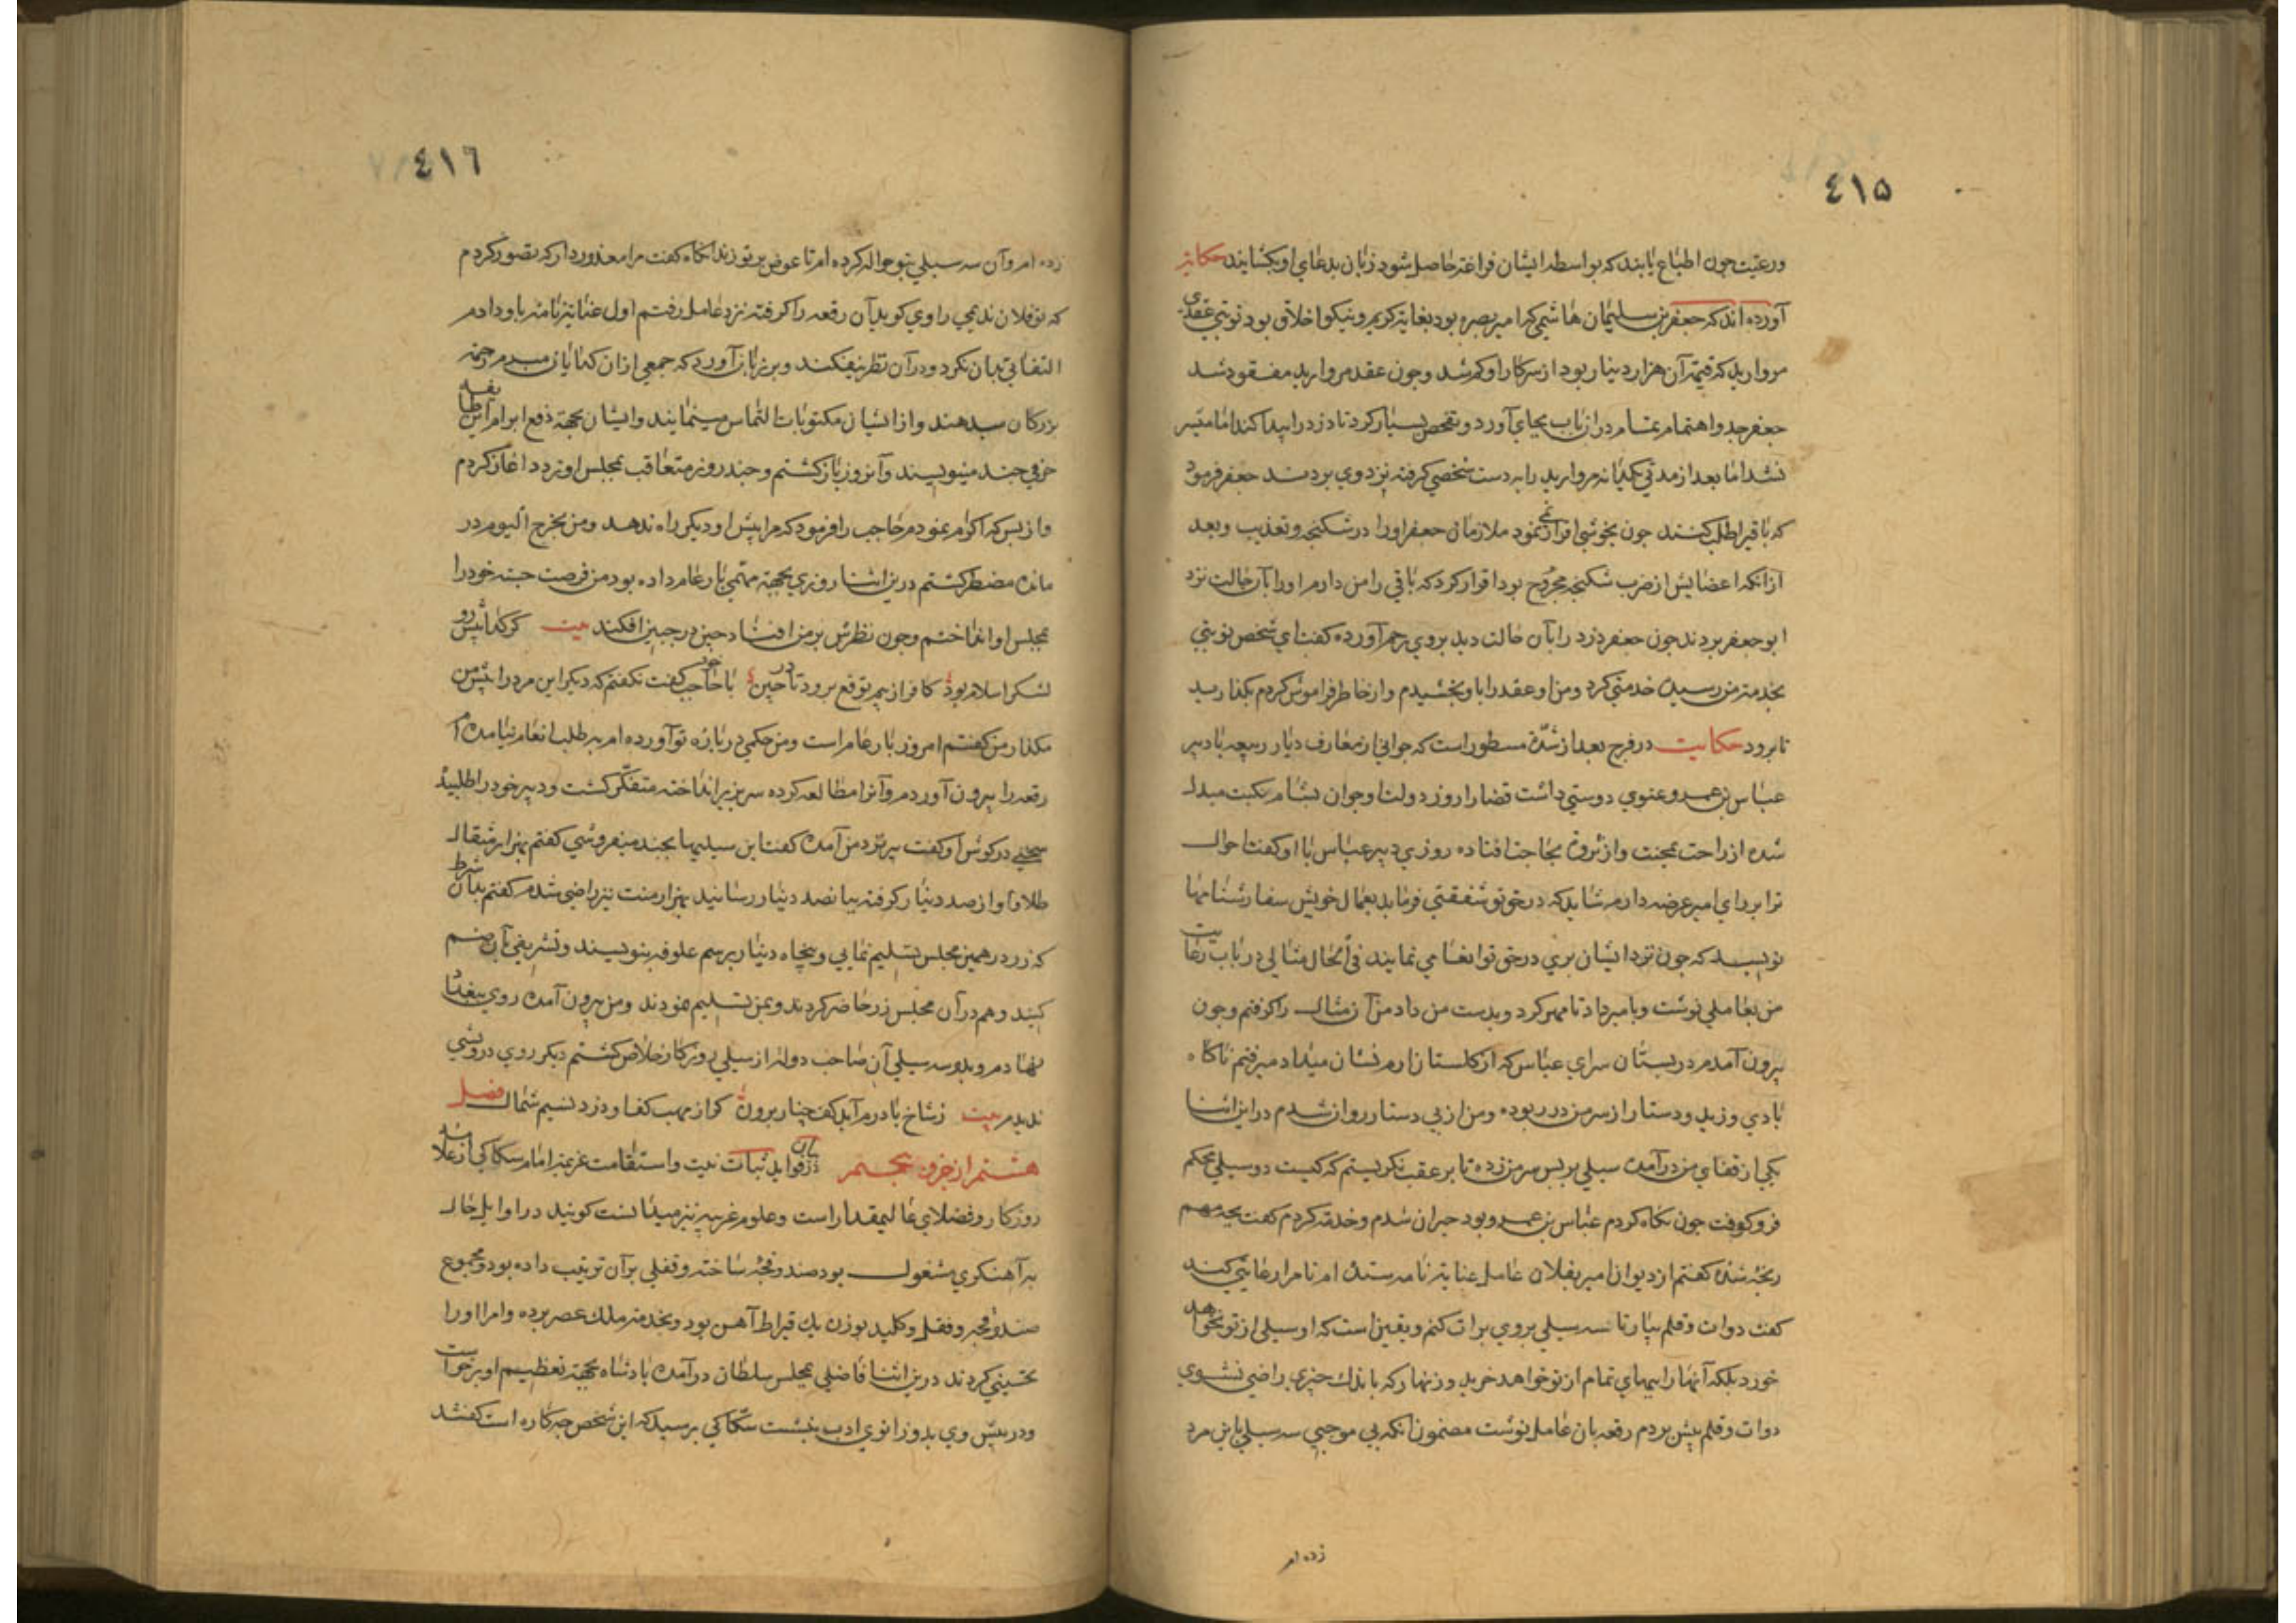 ٤١٥
ورعیت چون اطباع یابند که بواسطه ایشان فراغتی حاصل شود زبان بدعای او بکشایند حکایت
آورده اند که جعفر بن سلیمان هاشمی که امیر بصره بود بغایت کریم و نیکو اخلاق بود نوبتی عقدی
مروارید که قیمت آن هزار دینار بود از سرکار او کم شد و چون عقد مروارید مفقود شد
جعفر جد و اهتمام تمام دران باب بجای آورد و تفحص بسیار کرد تا دزد را پیدا کند اما میسر
نشد اما بعد از مدتی یکدانه مروارید را به دست شخصی گرفته نزد وی بردند جعفر فرمود
که باقی را طلب کنند چون بخوشی اقرار نمی نمود ملازمان جعفر او را در شکنجه و تعذیب و بعد
از آنکه اعضایش از ضرب شکنجه مجروح بود اقرار کرد که باقی را من دارم او را بآن حالت نزد
ابو جعفر بردند چون جعفر دزد را بآن حالت دید بروی رحم آورده گفت ای شخص نوبتی
بخدمت من رسید خدمتی کرد و من او عقد را باو بخشیدم و از خاطر فراموش کردم بگذارید
تا برود حکایت در فرج بعد از شدة مسطور است که جوانی از معارف دیار ربیعه با دبیر
عباس بن عمرو غنوی دوستی داشت قضا را روز دولت او جوان بشام نکبت مبدل
شده از راحت بمحنت و از ثروة بحاجت افتاده روزی دبیر عباس با او گفت احوال
ترا بر رای امیر عرضه دارم شاید که در حق تو شفقتی فرماید بعمال خویش سفارشنامها
نویسد که چون نزد ایشان بری در حق تو انعامی نمایند فی الحال مثالی در باب رعایت
من بعاملی نوشت و بامیر داد تا مهر کرد و بدست من داد من آن مثال را گرفتم و چون
بیرون آمدم در بستان سرای عباس که از گلستان ارم نشان میداد میرفتم ناگاه
بادی وزید و دستار از سر من در ربوده و من از پی دستار روان شدم در این اثنا
یکی از قفای من در آمده سیلی بر پس سر من زده تا بر عقب نگریستم که کیست دو سیلی محکم
فرو کوفت چون نگاه کردم عباس بن عمرو بود حیران شدم و خدمت کردم گفت بچه مهم
رنجه شده گفتم از دیوان امیر بفلان عامل عنایت نامه ستده ام تا مرا رعایتی کند
گفت دوات و قلم بیار تا سه سیلی بر وی برات کنم و یقین است که او سیلی از تو نخواهد
خورد بلکه آنها را ببهای تمام از تو خواهد خرید و زنهار که باندک چیزی راضی نشوی
دوات و قلم پیش بردم رقعه بان عامل نوشت مضمون آنکه بی موجبی سه سیلی باین مرد
زده ام
٤١٦
زده ام و آن سه سیلی بتو حواله کرده ام تا عوض بر تو زند آنگاه گفت مرا معذور دار که تصور کردم
که تو فلان ندیمی راوی گوید آن رقعه را گرفته نزد عامل رفتم اول عنایت نامه باو دادم
التفاتی بدان نکرد و در آن نظر نیفکند و بر زبان آورد که جمعی ازان گدایان مبرم زحمت
بزرگان میدهند و از ایشان مکتوبات التماس مینمایند و ایشان بجهة دفع ابرام این طایفه
حرفی چند مینویسند و آنروز باز گشتم و چند روز متعاقب بمجلس او تردد آغاز کردم
و از بس که اکرام نمودم حاجب را فرمود که مرا پیش او دیگر راه ندهد و من بخرج الیوم در
مانده مضطر گشتم درین اثنا روزی بجهة مهمی بار عام داده بود من فرصت جسته خود را
بمجلس او انداختم و چون نظرش بر من افتاد چین در جبین افکند بیت گر گدا پیش رو
لشکر اسلام بود کافر از بیم توقع برود تا در چین با حاجب خود گفت نگفتم که دیگر این مرد را پیش من
مگذار من گفتم امروز بار عام است و من حکمی در باره تو آورده ام به طلب انعام نیامده ام
رقعه را بیرون آوردم و آنرا مطالعه کرده سر بزیر انداخته متفکر گشت و دبیر خود را طلبید
سخنی در گوش او گفت پیر نزد من آمده گفت این سیلیها بچند میفروشی گفتم بهزار مثقال
طلا و او از صد دینار گرفته بپانصد دینار رسانید بهزار منت نیز راضی شدم گفتم بدان شرط
که زر در همین مجلس تسلیم نمایی و پنجاه دینار برسم علوفه بنویسند و تشریفی بآن ضم
کنند و هم در آن مجلس زر حاضر کردند و بمن تسلیم نمودند و من بیرون آمده روی ببغداد
نهادم و بدو سه سیلی آن صاحب دولت از سیلی روزگار خلاص گشتم دیگر روی درویشی
ندیدم بیت ز شاخ باد در آید کف چنار برون گر از مهب کف او وزد نسیم شمال فصل
هشتم از جزو پنجم در بیان فواید ثبات نیت و استقامت عزیمت امام سکاکی از علامه
روزگار و فضلای عالیمقدار است و علوم غریبه نیز میدانست گویند در اوایل حال
به آهنگری مشغول بود صندوقچه ساخته و قفلی بر آن ترتیب داده بود و مجموع
صندوقچه و قفل و کلید بوزن یک قیراط آهن بود و بخدمت ملک عصر برده و امرا او را
تحسینی کردند درین اثنا فاضلی بمجلس سلطان در آمده پادشاه بجهة تعظیم او برخواست
و در پیش وی بدو زانوی ادب بنشست سکاکی پرسید که این شخص چه کاره است گفتند